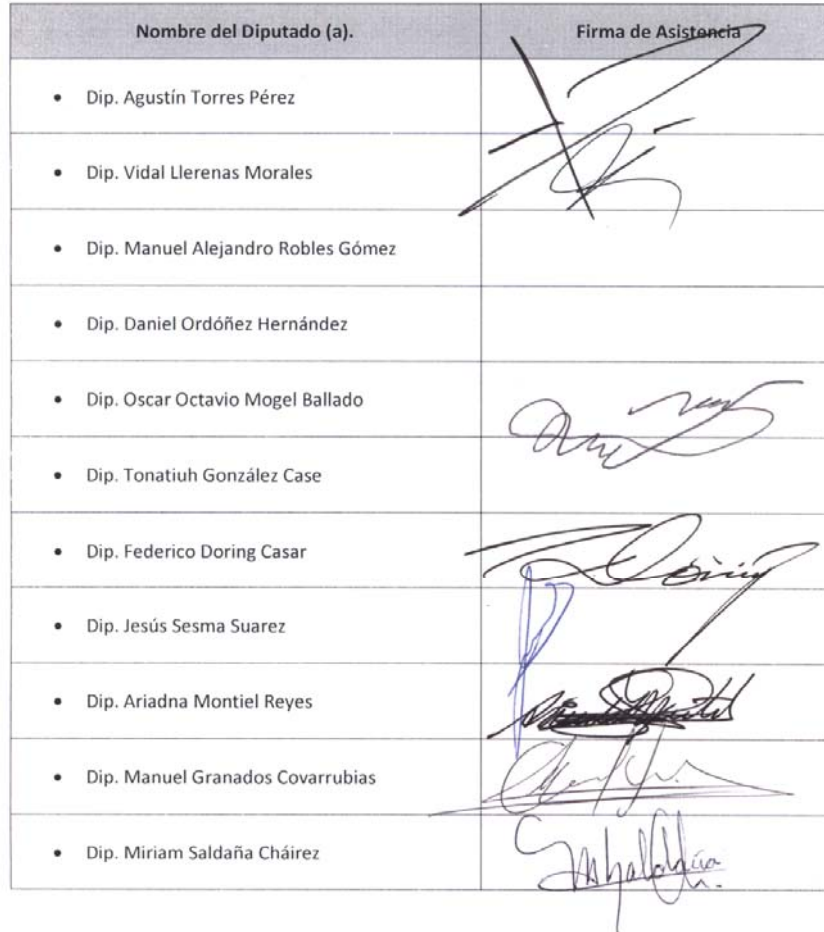 Nombre del Diputado (a). Firma de Asistencia
• Dip. Agustín Torres Pérez
• Dip. Vidal Llerenas Morales
• Dip. Manuel Alejandro Robles Gómez
• Dip. Daniel Ordóñez Hernández
• Dip. Oscar Octavio Mogel Ballado
• Dip. Tonatiuh González Case
• Dip. Federico Doring Casar
• Dip. Jesús Sesma Suarez
• Dip. Ariadna Montiel Reyes
• Dip. Manuel Granados Covarrubias
• Dip. Miriam Saldaña Cháirez